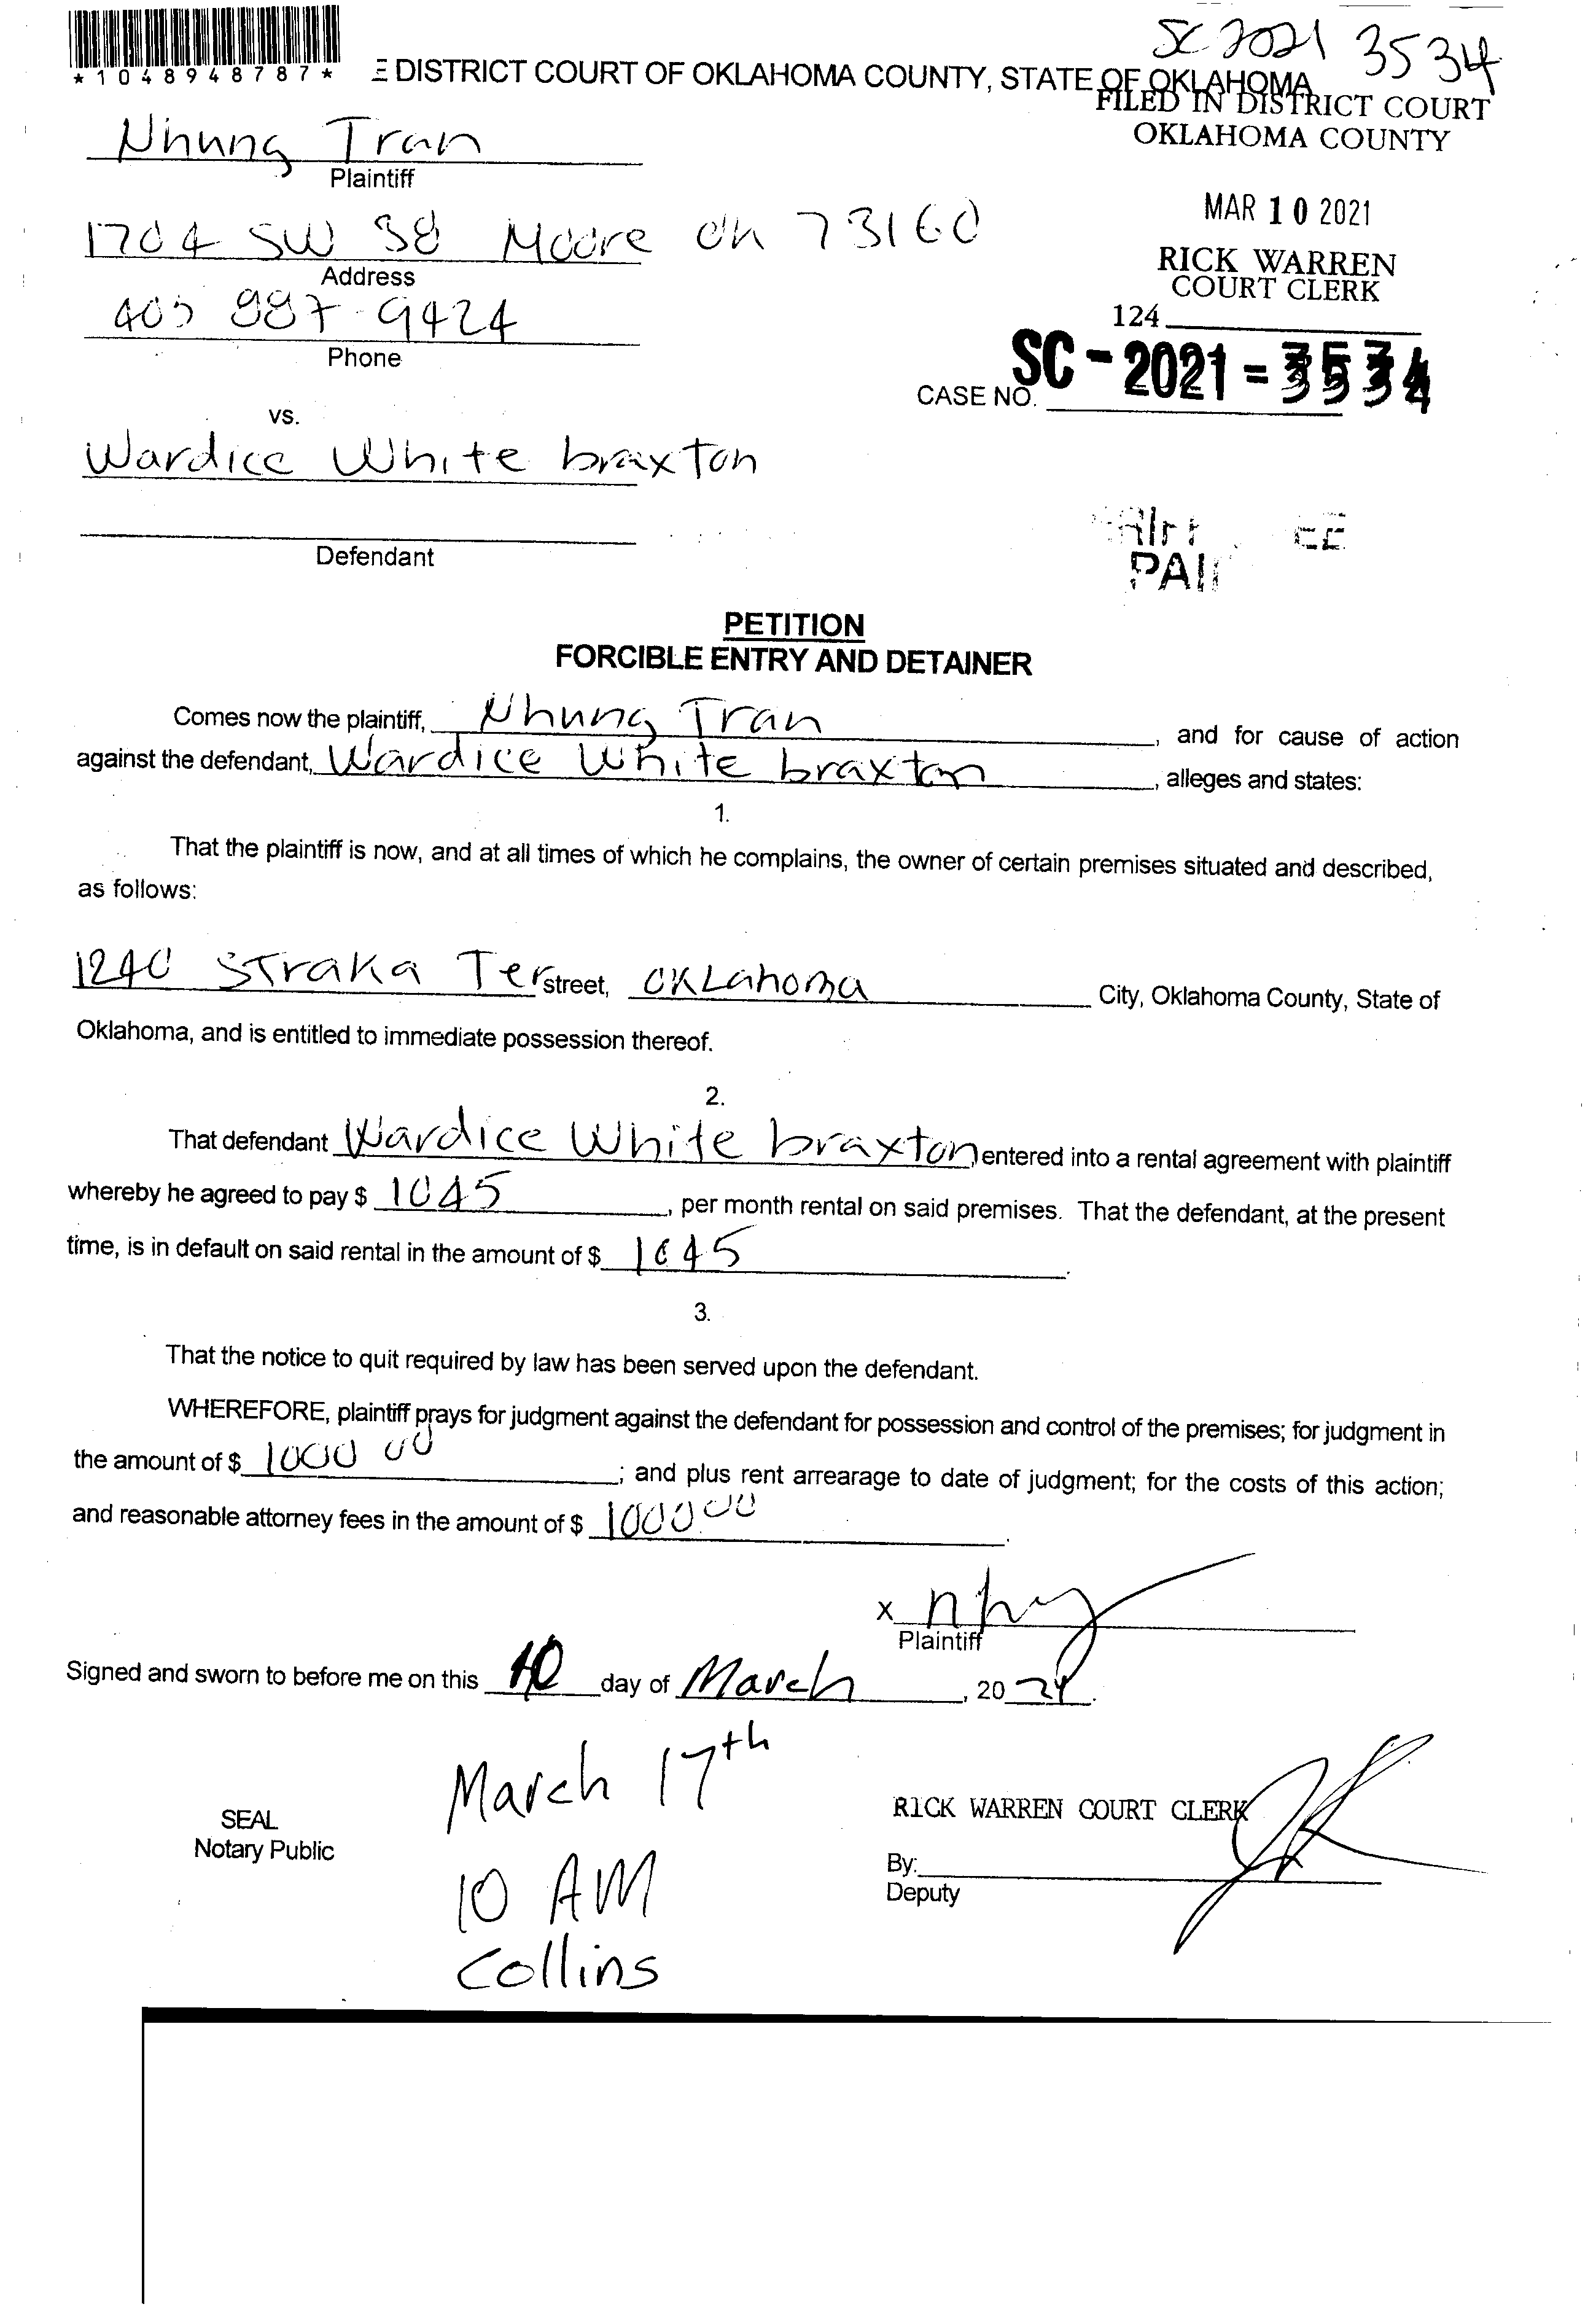 *1048948787*
SC 2021 3534
E DISTRICT COURT OF OKLAHOMA COUNTY, STATE OF OKLAHOMA
FILED IN DISTRICT COURT
OKLAHOMA COUNTY
Nhung Tran
Plaintiff
MAR 10 2021
1704 SW 38 Moore ok 73160
Address
RICK WARREN
COURT CLERK
405 887-9424
Phone
124
CASE NO. SC-2021=3534
vs.
Wardice White braxton
Defendant
PETITION
FORCIBLE ENTRY AND DETAINER
Comes now the plaintiff, Nhung Tran, and for cause of action
against the defendant, Wardice White braxton, alleges and states:
1.
That the plaintiff is now, and at all times of which he complains, the owner of certain premises situated and described,
as follows:
1240 Straka Ter street, OKLahoma City, Oklahoma County, State of
Oklahoma, and is entitled to immediate possession thereof.
2.
That defendant Wardice White braxton entered into a rental agreement with plaintiff
whereby he agreed to pay $ 1045, per month rental on said premises. That the defendant, at the present
time, is in default on said rental in the amount of $ 1045.
3.
That the notice to quit required by law has been served upon the defendant.
WHEREFORE, plaintiff prays for judgment against the defendant for possession and control of the premises; for judgment in
the amount of $ 1000 00; and plus rent arrearage to date of judgment; for the costs of this action;
and reasonable attorney fees in the amount of $ 1000.00.
X
Plaintiff
Signed and sworn to before me on this 10 day of March, 20 21.
March 17th
SEAL
Notary Public
RICK WARREN COURT CLERK
10 AM
By:
Deputy
Collins